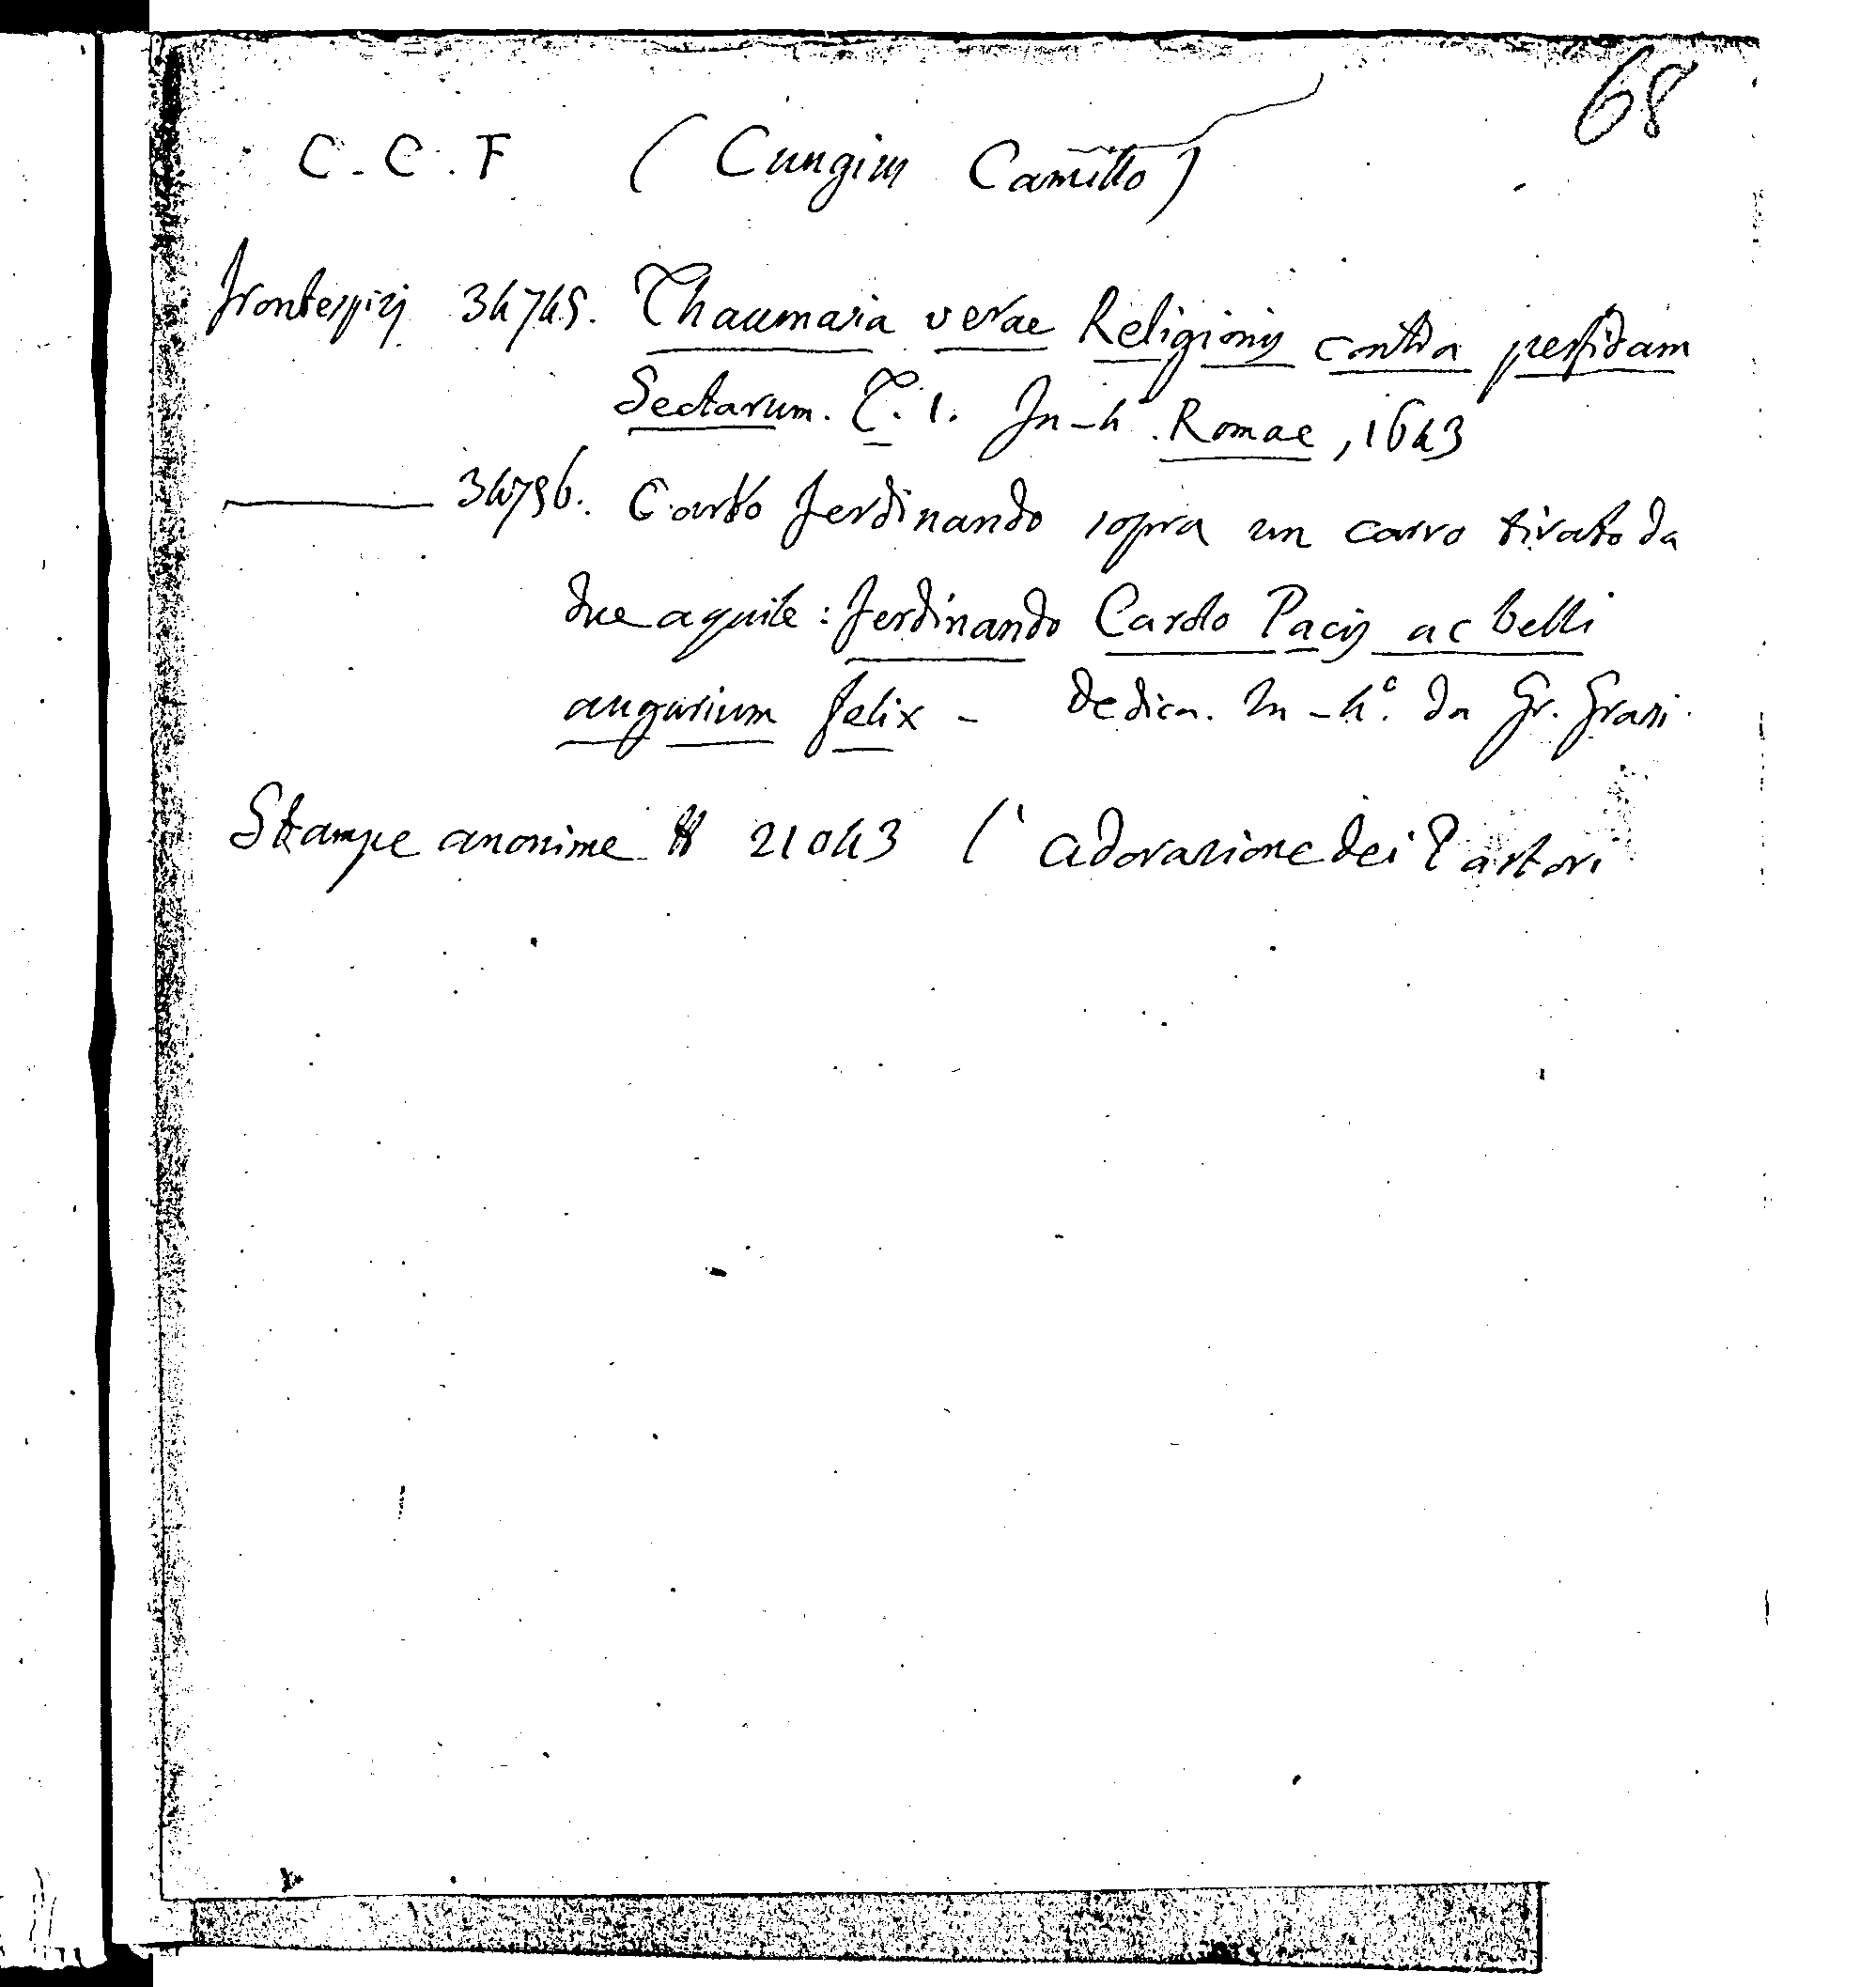 68
C. C. F (Cungius Camillo)
Frontespizj 34745. Thaumasia verae Religionis contra perfidam
Sectarum. T. 1. In-4° Romae, 1643
——— 34756. Carlo Ferdinando sopra un carro tirato da
due aquile: Ferdinando Carolo Pacis ac belli
augurium felix - dedica. In-4°. da Gr. Grasi.
Stampe anonime 21043 L'adorazione dei Pastori